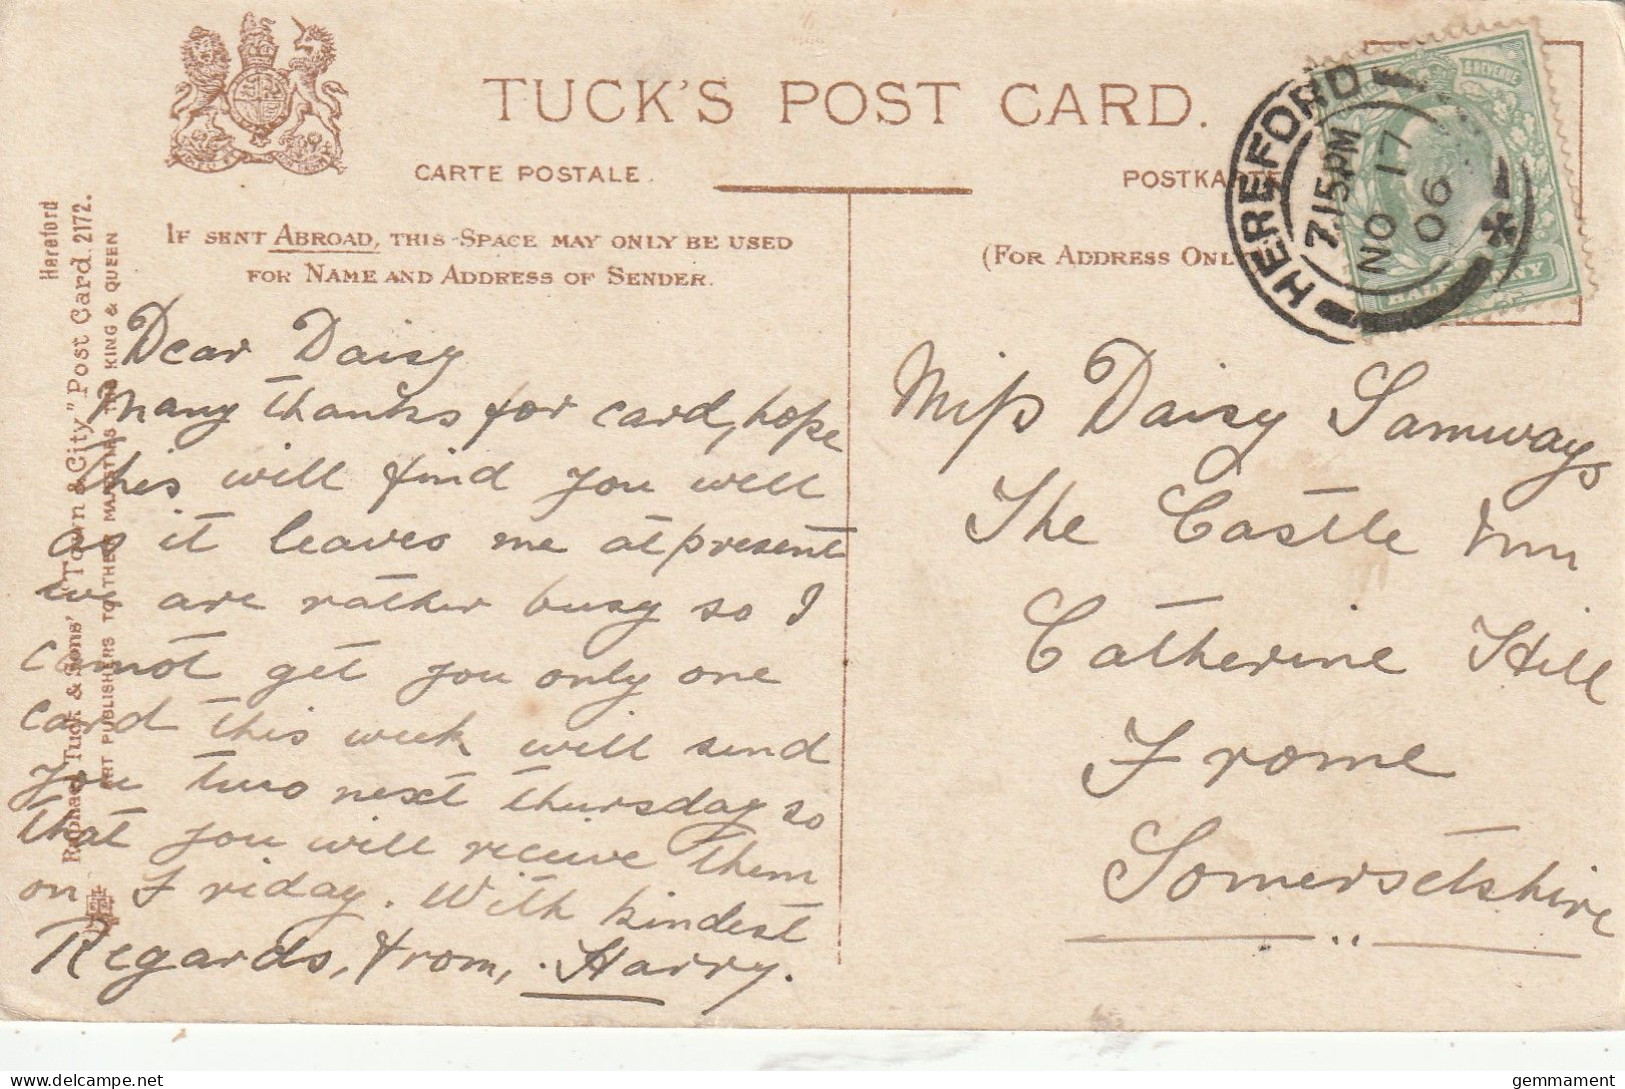 TUCK'S POST CARD.
CARTE POSTALE.
POSTKA
IF SENT ABROAD, THIS SPACE MAY ONLY BE USED
FOR NAME AND ADDRESS OF SENDER.
(FOR ADDRESS ONL
HEREFORD
7.15PM
NO 17
06
& REVENUE
Hereford
Raphael Tuck & Sons' "Town & City" Post Card. 2172.
ART PUBLISHERS TO THEIR MAJESTIES THE KING & QUEEN
Dear Daisy
Many thanks for card, hope
this will find you well
as it leaves me at present
we are rather busy so I
cannot get you only one
card this week will send
you two next thursday so
that you will receive them
on Friday. With kindest
Regards, from, Harry.
Miss Daisy Samways
The Castle Inn
Catherine Hill
Frome
Somersetshire
gemmament